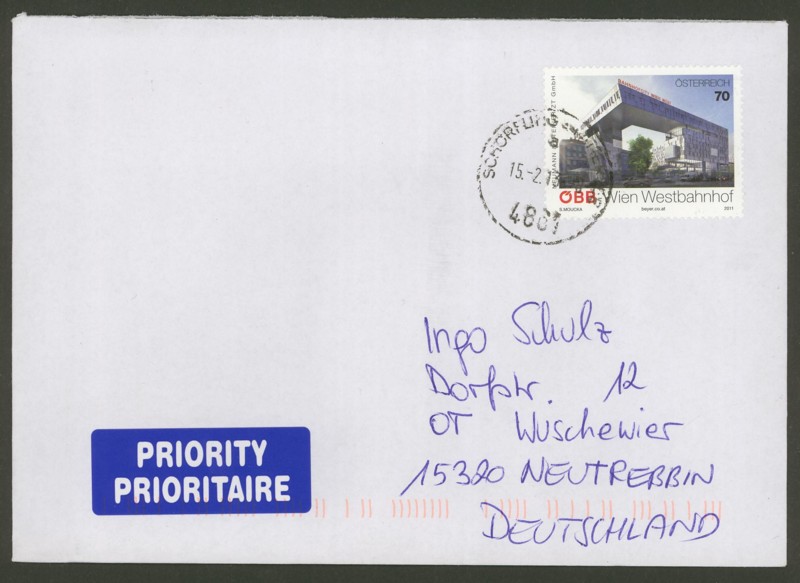 ÖSTERREICH
70
BAHNHOFCITY WIEN WEST
ÖBB Wien Westbahnhof
S.MOUCKA beyer.co.at 2011
15.-2.
4861
Ingo Schulz
Dorfstr. 12
OT Wuschewier
15320 NEUTREBBIN
DEUTSCHLAND
PRIORITY
PRIORITAIRE